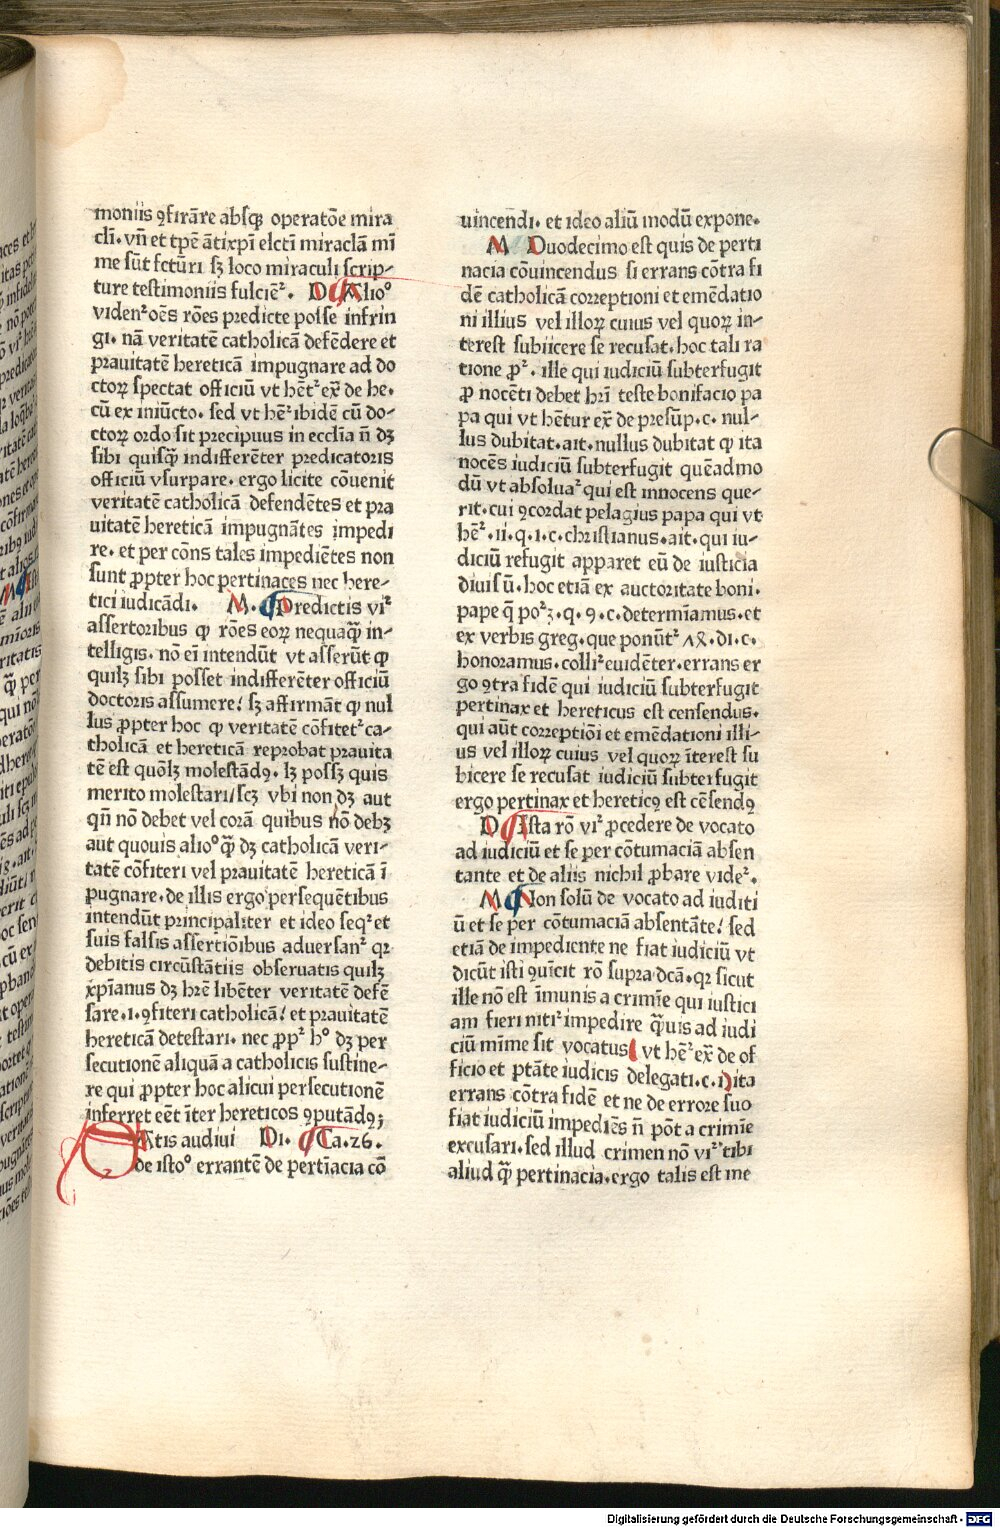 moniis ꝯfirāre absqꝫ operatōe mira
cli. vn̄ et tp̄e āt̄ixp̄i elct̄i miraclā mī
me sūt fct̄uri sꝫ loco miraculi scrip-
ture testimoniis fulciēᷣ. D. Alio⁰
videnᷣ oēs rōes predicte posse infrin
gi. nā veritatē catholicā defēdere et
prauitatē hereticā impugnare ad do
ctoꝝ spectat officiū vt hētᷣ ex̄ de he.
cū ex iniūcto. sed vt hēᷣ ibidē cū do-
ctoꝝ ordo sit precipuus in eccl̄ia n̄ dꝫ
sibi quisꝙ̄ indifferēter predicatoris
officiū vsurpare. ergo licite cōuenit
veritatē catholicā defendētes et pra
uitatē hereticā impugnātes impedi
re. et per cōns tales impediētes non
sunt ꝓpter hoc pertinaces nec here-
tici iudicādi. M. Predictis viᷣ
assertoribus ꝙ rōes eoꝝ nequaꝙ̄ in-
telligis. nō ei̅ intendūt vt asserūt ꝙ
quilꝫ sibi posset indifferēter officiū
doctoris assumere/ sꝫ affirmāt ꝙ nul
lus ꝓpter hoc ꝙ veritatē cōfitetᷣ ca-
tholicā et hereticā reprobat prauita
tē est quōlꝫ molestādꝰ. lꝫ possꝫ quis
merito molestari/ scꝫ vbi non dꝫ aut
qn̄ nō debet vel corā quibus nō debꝫ
aut quouis alio⁰ ꝙ̄ dꝫ catholicā veri-
tatē cōfiteri vel prauitatē hereticā ī
pugnare. de illis ergo persequētibus
intendūt principaliter et ideo seqᷣ et
suis falsis assertiōibus aduersanᷣ qꝛ
debitis circūstātiis obseruatis quilꝫ
xp̄ianus dꝫ hr̄e libēter veritatē defē
sare. i. ꝯfiteri catholicā/ et prauitatē
hereticā detestari. nec ꝓpᷣ h⁰ dꝫ per
secutionē aliquā a catholicis sustine-
re qui ꝓpter hoc alicui persecutionē
inferret eēt īter hereticos ꝯputādꝰ;
SAtis audiui Di. Ca. 26.
de isto⁰ errantē de pertīacia cō
uincendi. et ideo aliū modū expone.
M Duodecimo est quis de perti
nacia cōuincendus si errans cōtra fi
dē catholicā correptioni et emēdatio
ni illius vel illoꝝ cuius vel quoꝝ in-
terest subiicere se recusat. hoc tali ra
tione ꝓᷣ. ille qui iudiciū subterfugit
ꝓ nocēti debet hr̄i teste bonifacio pa
pa qui vt hētur ex̄ de presūp. c. nul-
lus dubitat. ait. nullus dubitat ꝙ ita
nocēs iudiciū subterfugit quēadmo
dū vt absoluaᷣ qui est innocens que-
rit. cui ꝯcordat pelagius papa qui vt
hēᷣ. ii. q. i. c. christianus. ait. qui iu-
diciū refugit apparet eū de iusticia
diuisū. hoc etiā ex auctoritate boni.
pape q̄ poᷣ 3. q. 9. c. determīamus. et
ex verbis greg. que ponūtᷣ ʌ8. di. c.
honoramus. colliᷣ euidēter. errans er
go ꝯtra fidē qui iudiciū subterfugit
pertinax et hereticus est censendus.
qui aūt correptiōi et emēdationi illi-
us vel illoꝝ cuius vel quoꝝ īterest su
bicere se recusat iudiciū subterfugit
ergo pertinax et hereticꝰ est cēsendꝰ
D Ista rō viᷣ ꝓcedere de vocato
ad iudiciū et se per cōtumaciā absen
tante et de aliis nichil ꝓbare videᷣ.
M Non solū de vocato ad iuditi
ū et se per cōtumaciā absentāte/ sed
etiā de impediente ne fiat iudiciū vt
dicūt isti ꝯuīcit rō supra dcā. qꝛ sicut
ille nō est īmunis a crimīe qui iustici
am fieri nitiᷣ impedire ꝙ̄uis ad iudi
ciū mīme sit vocatus vt hēᷣ ex̄ de of
ficio et ptāte iudicis delegati. c. i. ita
errans cōtra fidē et ne de errore suo
fiat iudiciū impediēs n̄ pōt a crimīe
excusari. sed illud crimen nō viᷣ tibi
aliud ꝙ̄ pertinacia. ergo talis est me
Digitalisierung gefördert durch die Deutsche Forschungsgemeinschaft - DFG